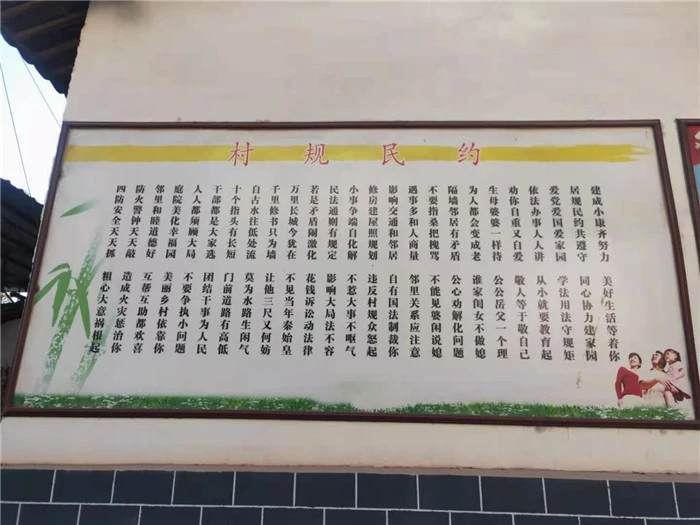 村规民约
建成小康齐努力 美好生活等着你
居规民约共遵守 同心协力建家园
爱党爱国爱家园 学法用法守规矩
依法办事人人讲 从小就要教育起
劝你自重又自爱 敬人等于敬自己
生母婆婆一样待 公公岳父一个理
为人都会变成老 谁家闺女不做媳
隔墙邻居有矛盾 公心劝解化问题
不要指桑把槐骂 不能见婆闲说媳
遇事多和人商量 邻里关系应注意
影响交通和邻居 自有国法制裁你
修房建屋照规划 违反村规众怒起
小事争端自化解 不惹大事不呕气
民法通则有规定 影响大局法不容
若是矛盾闹激化 花钱诉讼动法律
万里长城今犹在 不见当年秦始皇
千里修书只为墙 让他三尺又何妨
自古水往低处流 莫为水路生闲气
十个指头有长短 门前道路有高低
干部都是大家选 团结干事为人民
人人都须顾大局 不要争执小问题
庭院美化幸福园 美丽乡村依靠你
邻里和睦道德好 互帮互助都欢喜
防火警钟天天敲 造成火灾惩治你
四防安全天天抓 粗心大意祸根起